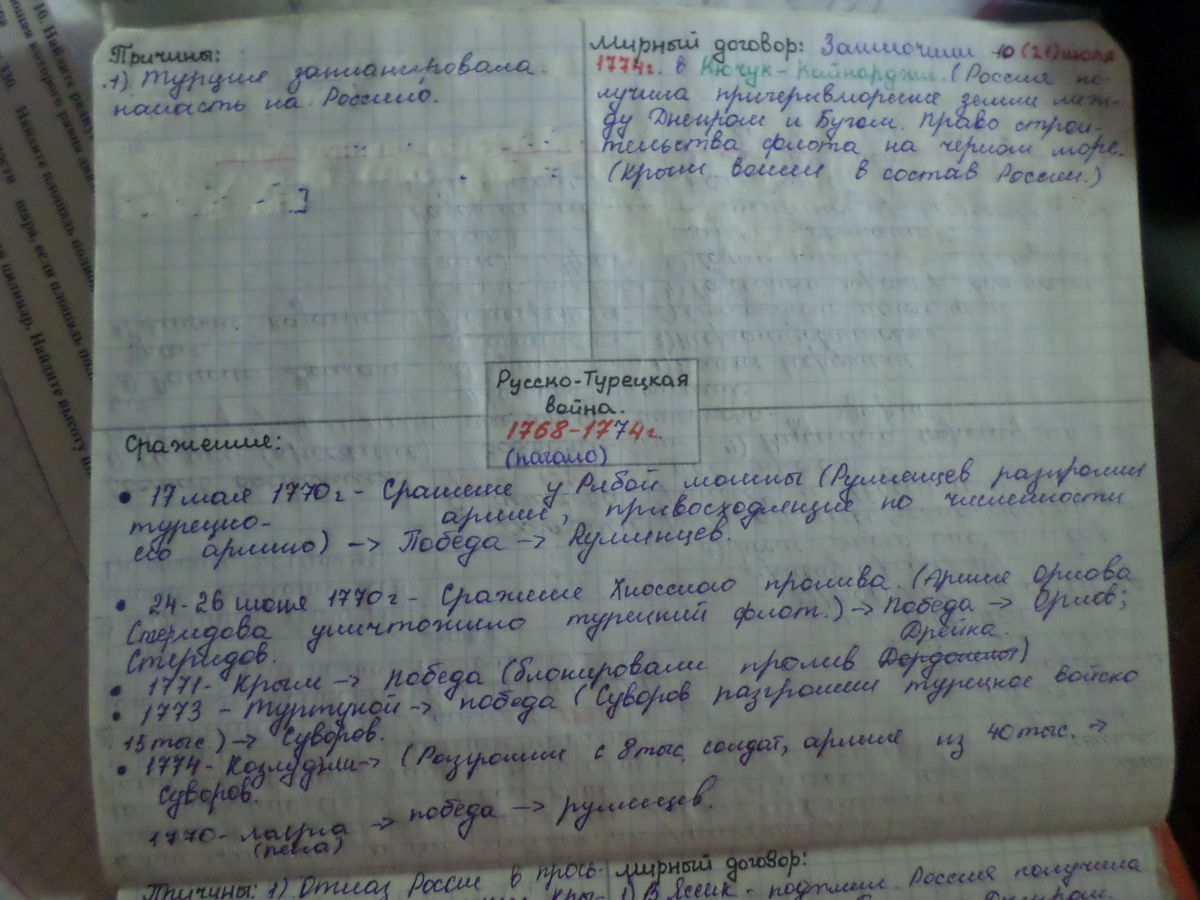 Причины:
1) Турция запланировала
напасть на Россию.
Мирный договор: Заключили 10 (21) июля
1774г. в Кючук-Кайнарджи. (Россия по-
лучила причерноморские земли меж-
ду Днепром и Бугом. Право строи-
тельства флота на черном море.
(Крым вошел в состав России.)
Русско-Турецкая
война.
1768-1774г.
Сражение:
• 17 мая 1770г - Сражение у Рябой могилы (Румянцев разгромил
турецко- армию, привосходящие по численности
его армию) -> Победа -> Румянцев.
• 24-26 июня 1770г - Сражение Хиосского пролива. (Армия Орлова
Спиридова уничтожило турецкий флот.) -> Победа -> Орлов;
Спиридов.
Дрейка.
• 1771- Крым -> победа (блокировали пролив Дарданеллы)
• 1773 - Туртукой -> победа (Суворов разгромил турецкое войско
15 тыс.) -> Суворов.
• 1774- Козлуджи -> (Разгромил с 8 тыс. солдат, армию из 40 тыс. ->
Суворов.
1770- Ларга -> победа -> румянцев.
Причины: 1) Отказ России в
мирный договор:
1) В Яссах - подписал. Россия получила
16. Найдите
330. Найдите площадь
шара, если площадь
цилиндр. Найдите высоту